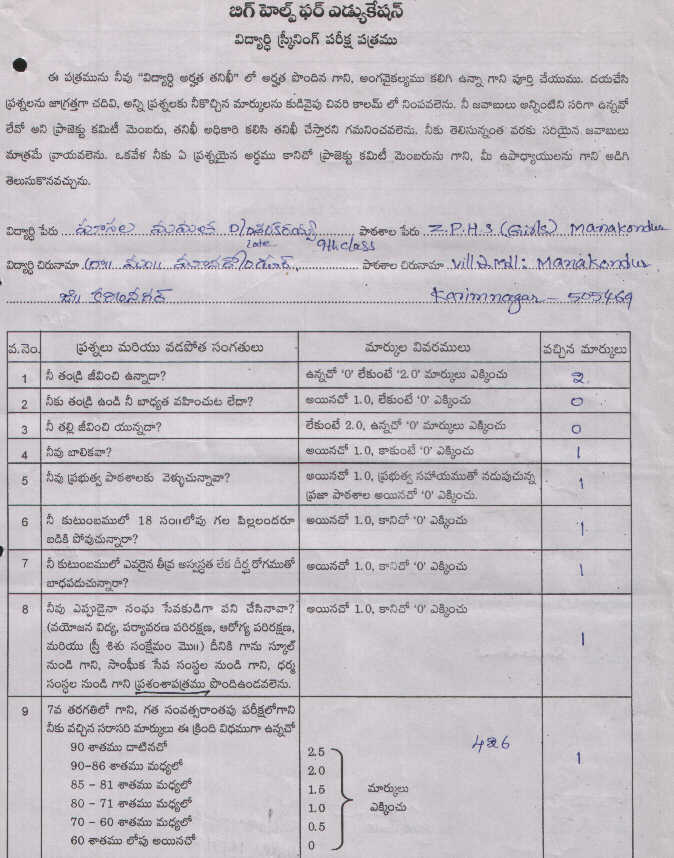 బిగ్ హెల్ప్ ఫర్ ఎడ్యుకేషన్
విద్యార్ధి స్క్రీనింగ్ పరీక్ష పత్రము
ఈ పత్రమును నీవు "విద్యార్ధి అర్హత తనిఖీ" లో అర్హత పొందిన గాని, అంగవైకల్యము కలిగి ఉన్నా గాని పూర్తి చేయుము. దయచేసి
ప్రశ్నలను జాగ్రత్తగా చదివి, అన్ని ప్రశ్నలకు నీకొచ్చిన మార్కులను కుడివైపు చివరి కాలమ్ లో నింపవలెను. నీ జవాబులు అన్నింటిని సరిగా ఉన్నవో
లేవో అని ప్రాజెక్టు కమిటీ మెంబరు, తనిఖీ అధికారి కలిసి తనిఖీ చేస్తారని గమనించవలెను. నీకు తెలిసున్నంత వరకు సరియైన జవాబులు
మాత్రమే వ్రాయవలెను. ఒకవేళ నీకు ఏ ప్రశ్నయైన అర్ధము కానిచో ప్రాజెక్టు కమిటీ మెంబరును గాని, మీ ఉపాధ్యాయులను గాని అడిగి
తెలుసుకొనవచ్చును.
విద్యార్ధి పేరు D/o పాఠశాల పేరు Z.P.H.S (Girls) Manakondur
late 9th class
విద్యార్ధి చిరునామా పాఠశాల చిరునామా Vill & Mdl: Manakondur
జి॥ కరీంనగర్ Karimnagar - 505469
వ.నెం. ప్రశ్నలు మరియు వడపోత సంగతులు మార్కుల వివరములు వచ్చిన మార్కులు
1 నీ తండ్రి జీవించి ఉన్నాడా? ఉన్నచో '0' లేకుంటే '2.0' మార్కులు ఎక్కించు 2
2 నీకు తండ్రి ఉండి నీ బాధ్యత వహించుట లేదా? అయినచో 1.0, లేకుంటే '0' ఎక్కించు 0
3 నీ తల్లి జీవించి యున్నదా? లేకుంటే 2.0, ఉన్నచో '0' మార్కులు ఎక్కించు 0
4 నీవు బాలికవా? అయినచో 1.0, కాకుంటే '0' ఎక్కించు 1
5 నీవు ప్రభుత్వ పాఠశాలకు వెళ్ళుచున్నావా? అయినచో 1.0, ప్రభుత్వ సహాయముతో నడుపుచున్న 1
ప్రజా పాఠశాల అయినచో '0' ఎక్కించు.
6 నీ కుటుంబములో 18 సం॥లోపు గల పిల్లలందరూ అయినచో 1.0, కానిచో '0' ఎక్కించు 1
బడికి పోవుచున్నారా?
7 నీ కుటుంబములో ఎవరైన తీవ్ర అస్వస్థత లేక దీర్ఘ రోగముతో అయినచో 1.0, కానిచో '0' ఎక్కించు 1
బాధపడుచున్నారా?
8 నీవు ఎప్పుడైనా సంఘ సేవకుడిగా పని చేసినావా? అయినచో 1.0, కానిచో '0' ఎక్కించు 1
(వయోజన విద్య, పర్యావరణ పరిరక్షణ, ఆరోగ్య పరిరక్షణ,
మరియు స్త్రీ శిశు సంక్షేమం మొ॥) దీనికి గాను స్కూల్
నుండి గాని, సాంఘీక సేవ సంస్థల నుండి గాని, ధర్మ
సంస్థల నుండి గాని ప్రశంసాపత్రము పొందిఉండవలెను.
9 7వ తరగతిలో గాని, గత సంవత్సరాంతపు పరీక్షలోగాని
నీకు వచ్చిన సరాసరి మార్కులు ఈ క్రింది విధముగా ఉన్నచో 426 1
90 శాతము దాటినచో 2.5
90-86 శాతము మధ్యలో 2.0
85 - 81 శాతము మధ్యలో 1.5 మార్కులు
80 - 71 శాతము మధ్యలో 1.0 ఎక్కించు
70 - 60 శాతము మధ్యలో 0.5
60 శాతము లోపు అయినచో 0